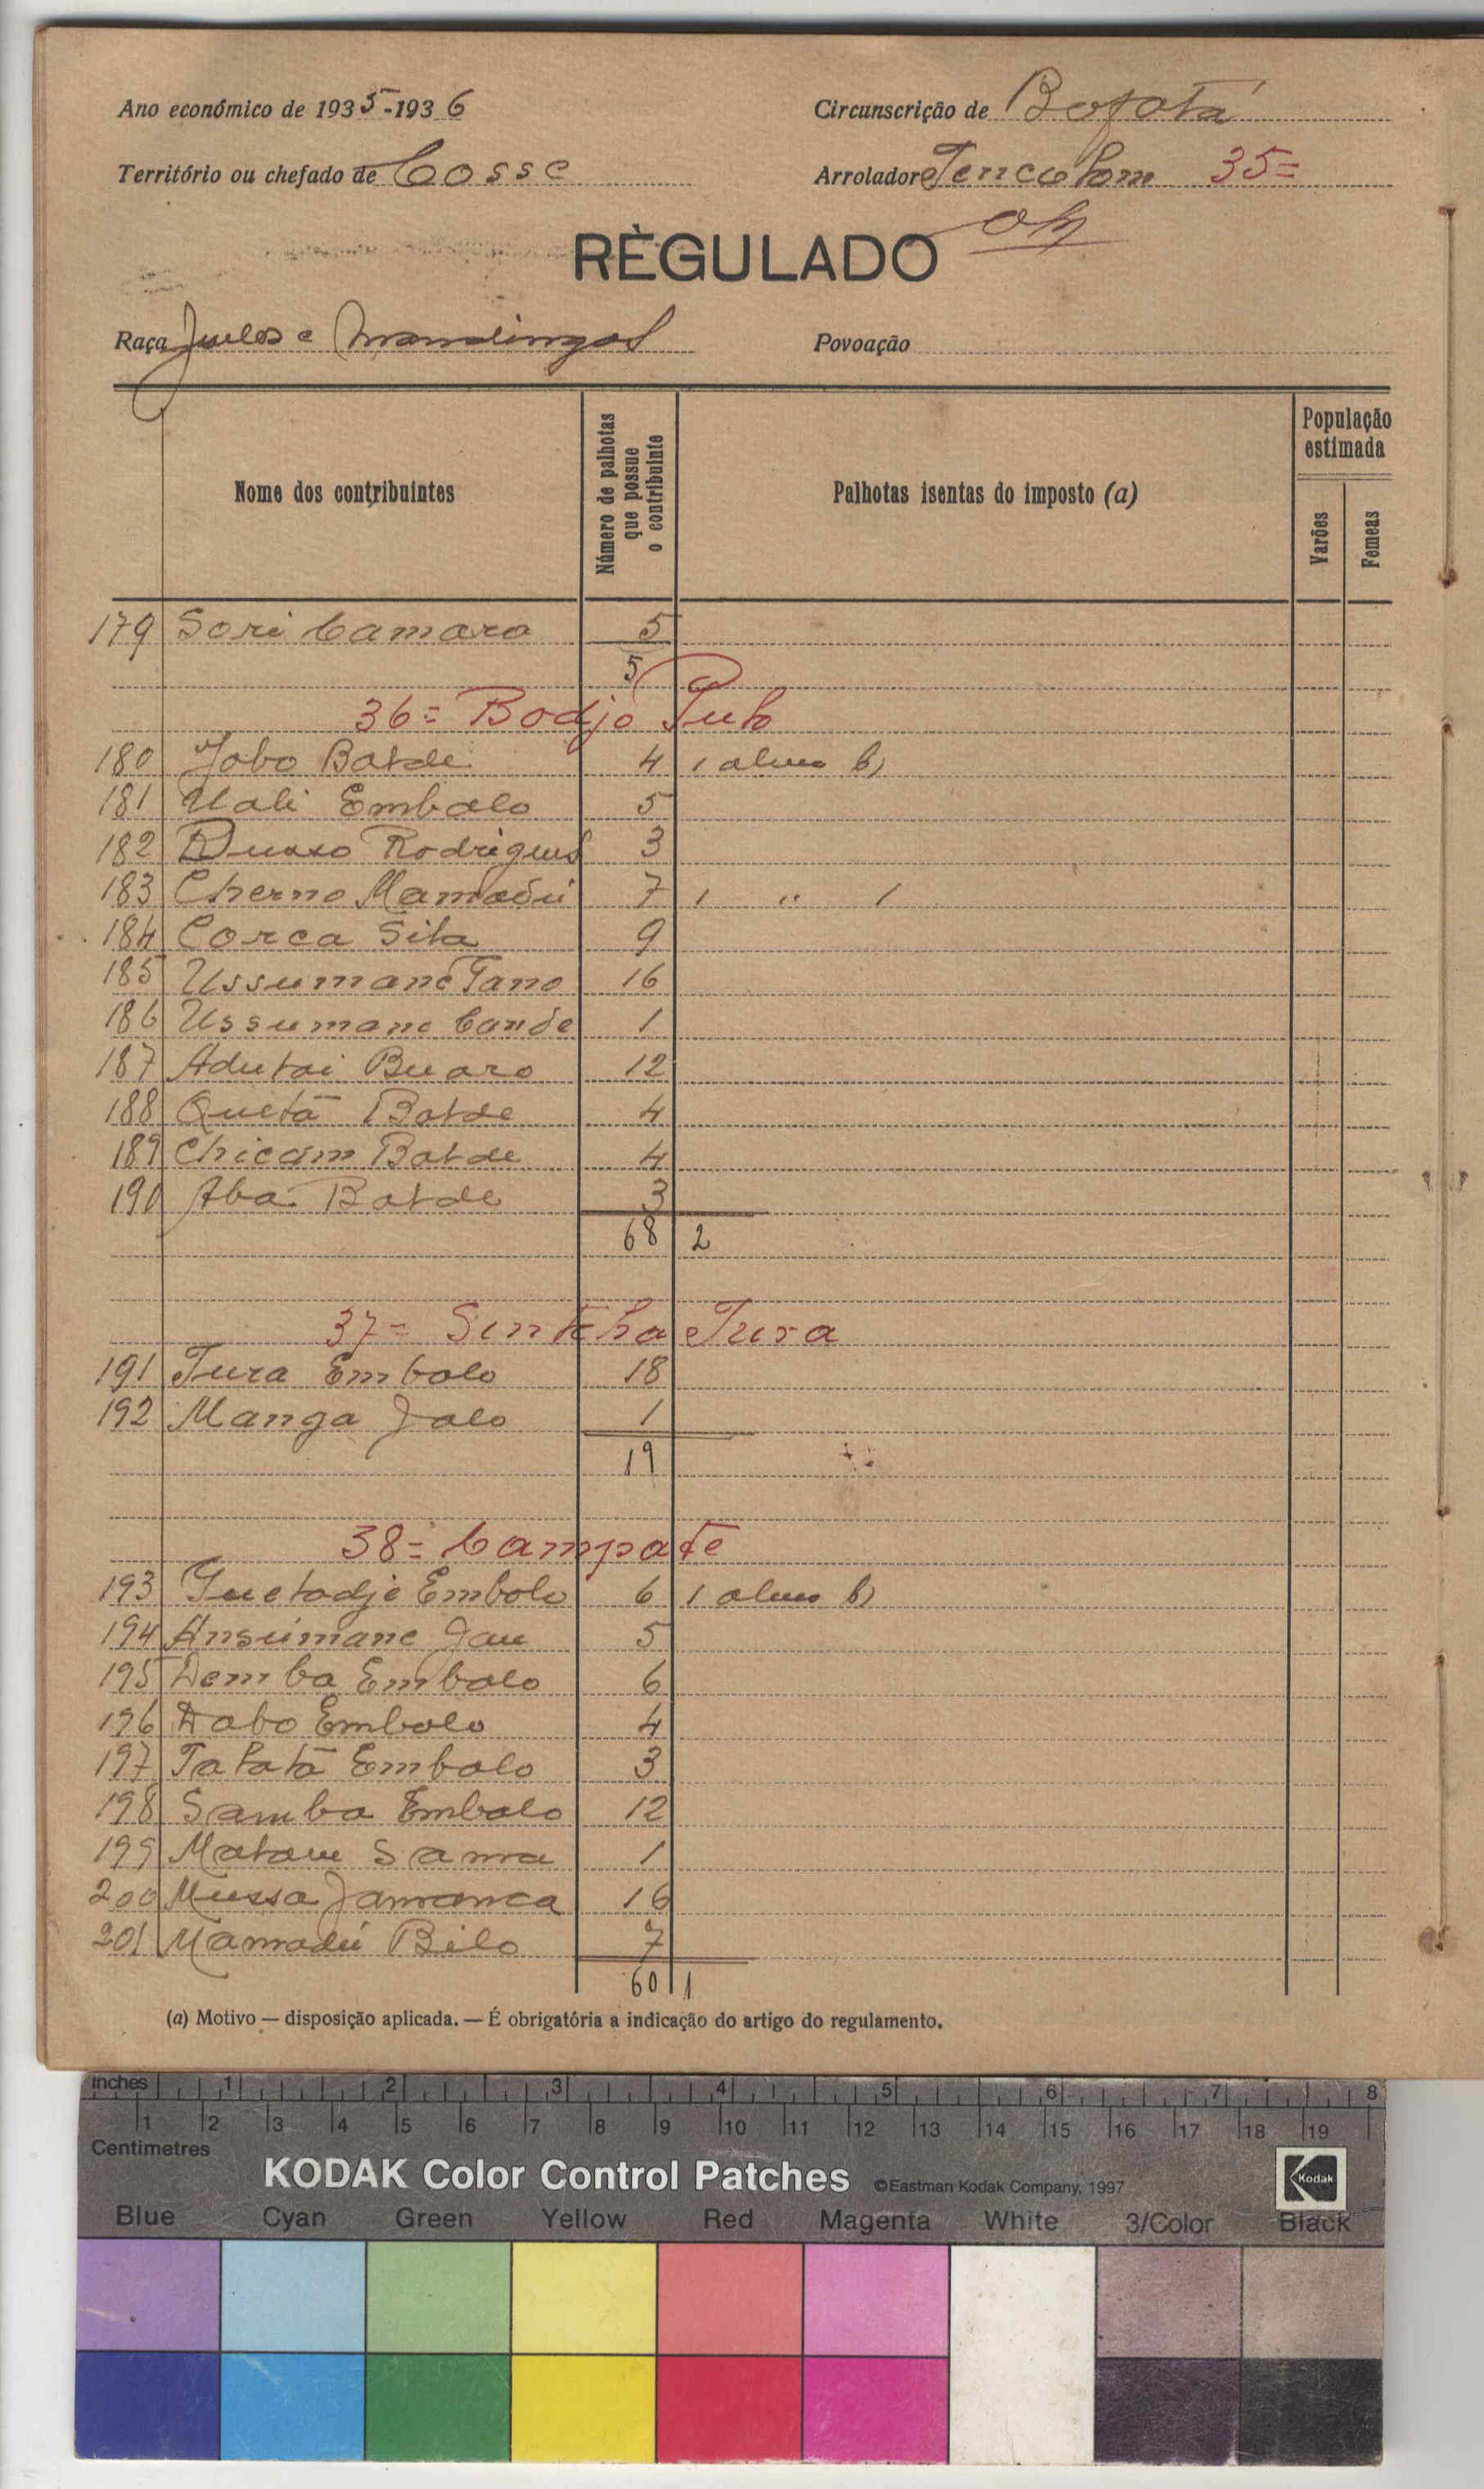 Ano económico de 1935-1936
Circunscrição de Bafatá
Território ou chefado de Cosse
Arrolador 35=
REGULADO
Raça Fulas e Mandingas
Povoação
Nome dos contribuintes
Número de palhotas que possue o contribuinte
Palhotas isentas do imposto (a)
População estimada
Varões
Femeas
179 Sori Camara 5
5
36= Bodjo Pulo
180 Jobo Balde 4 1 aluno b)
181 Uali Embalo 5
182 Rodrigues 3
183 Cherno Mamadú 7 1 " 1
184 Corca Sila 9
185 Ussumane Tano 16
186 Ussumane Cande 1
187 Adulai Buaro 12
188 Quetá Balde 4
189 Chicam Balde 4
190 Aba Balde 3
68 2
37= Sintcha Tura
191 Tura Embalo 18
192 Manga Jalo 1
19
38= Campate
193 Embalo 6 1 aluno b)
194 Ansumane Jau 5
195 Demba Embalo 6
196 Dabo Embalo 4
197 Tatatá Embalo 3
198 Samba Embalo 12
199 1
200 Mussa Jamanca 16
201 Mamadú Bilo 7
60 1
(a) Motivo — disposição aplicada. — É obrigatória a indicação do artigo do regulamento.
inches 1 2 3 4 5 6 7 8
1 2 3 4 5 6 7 8 9 10 11 12 13 14 15 16 17 18 19
Centimetres
KODAK Color Control Patches ©Eastman Kodak Company, 1997 Kodak
Blue Cyan Green Yellow Red Magenta White 3/Color Black